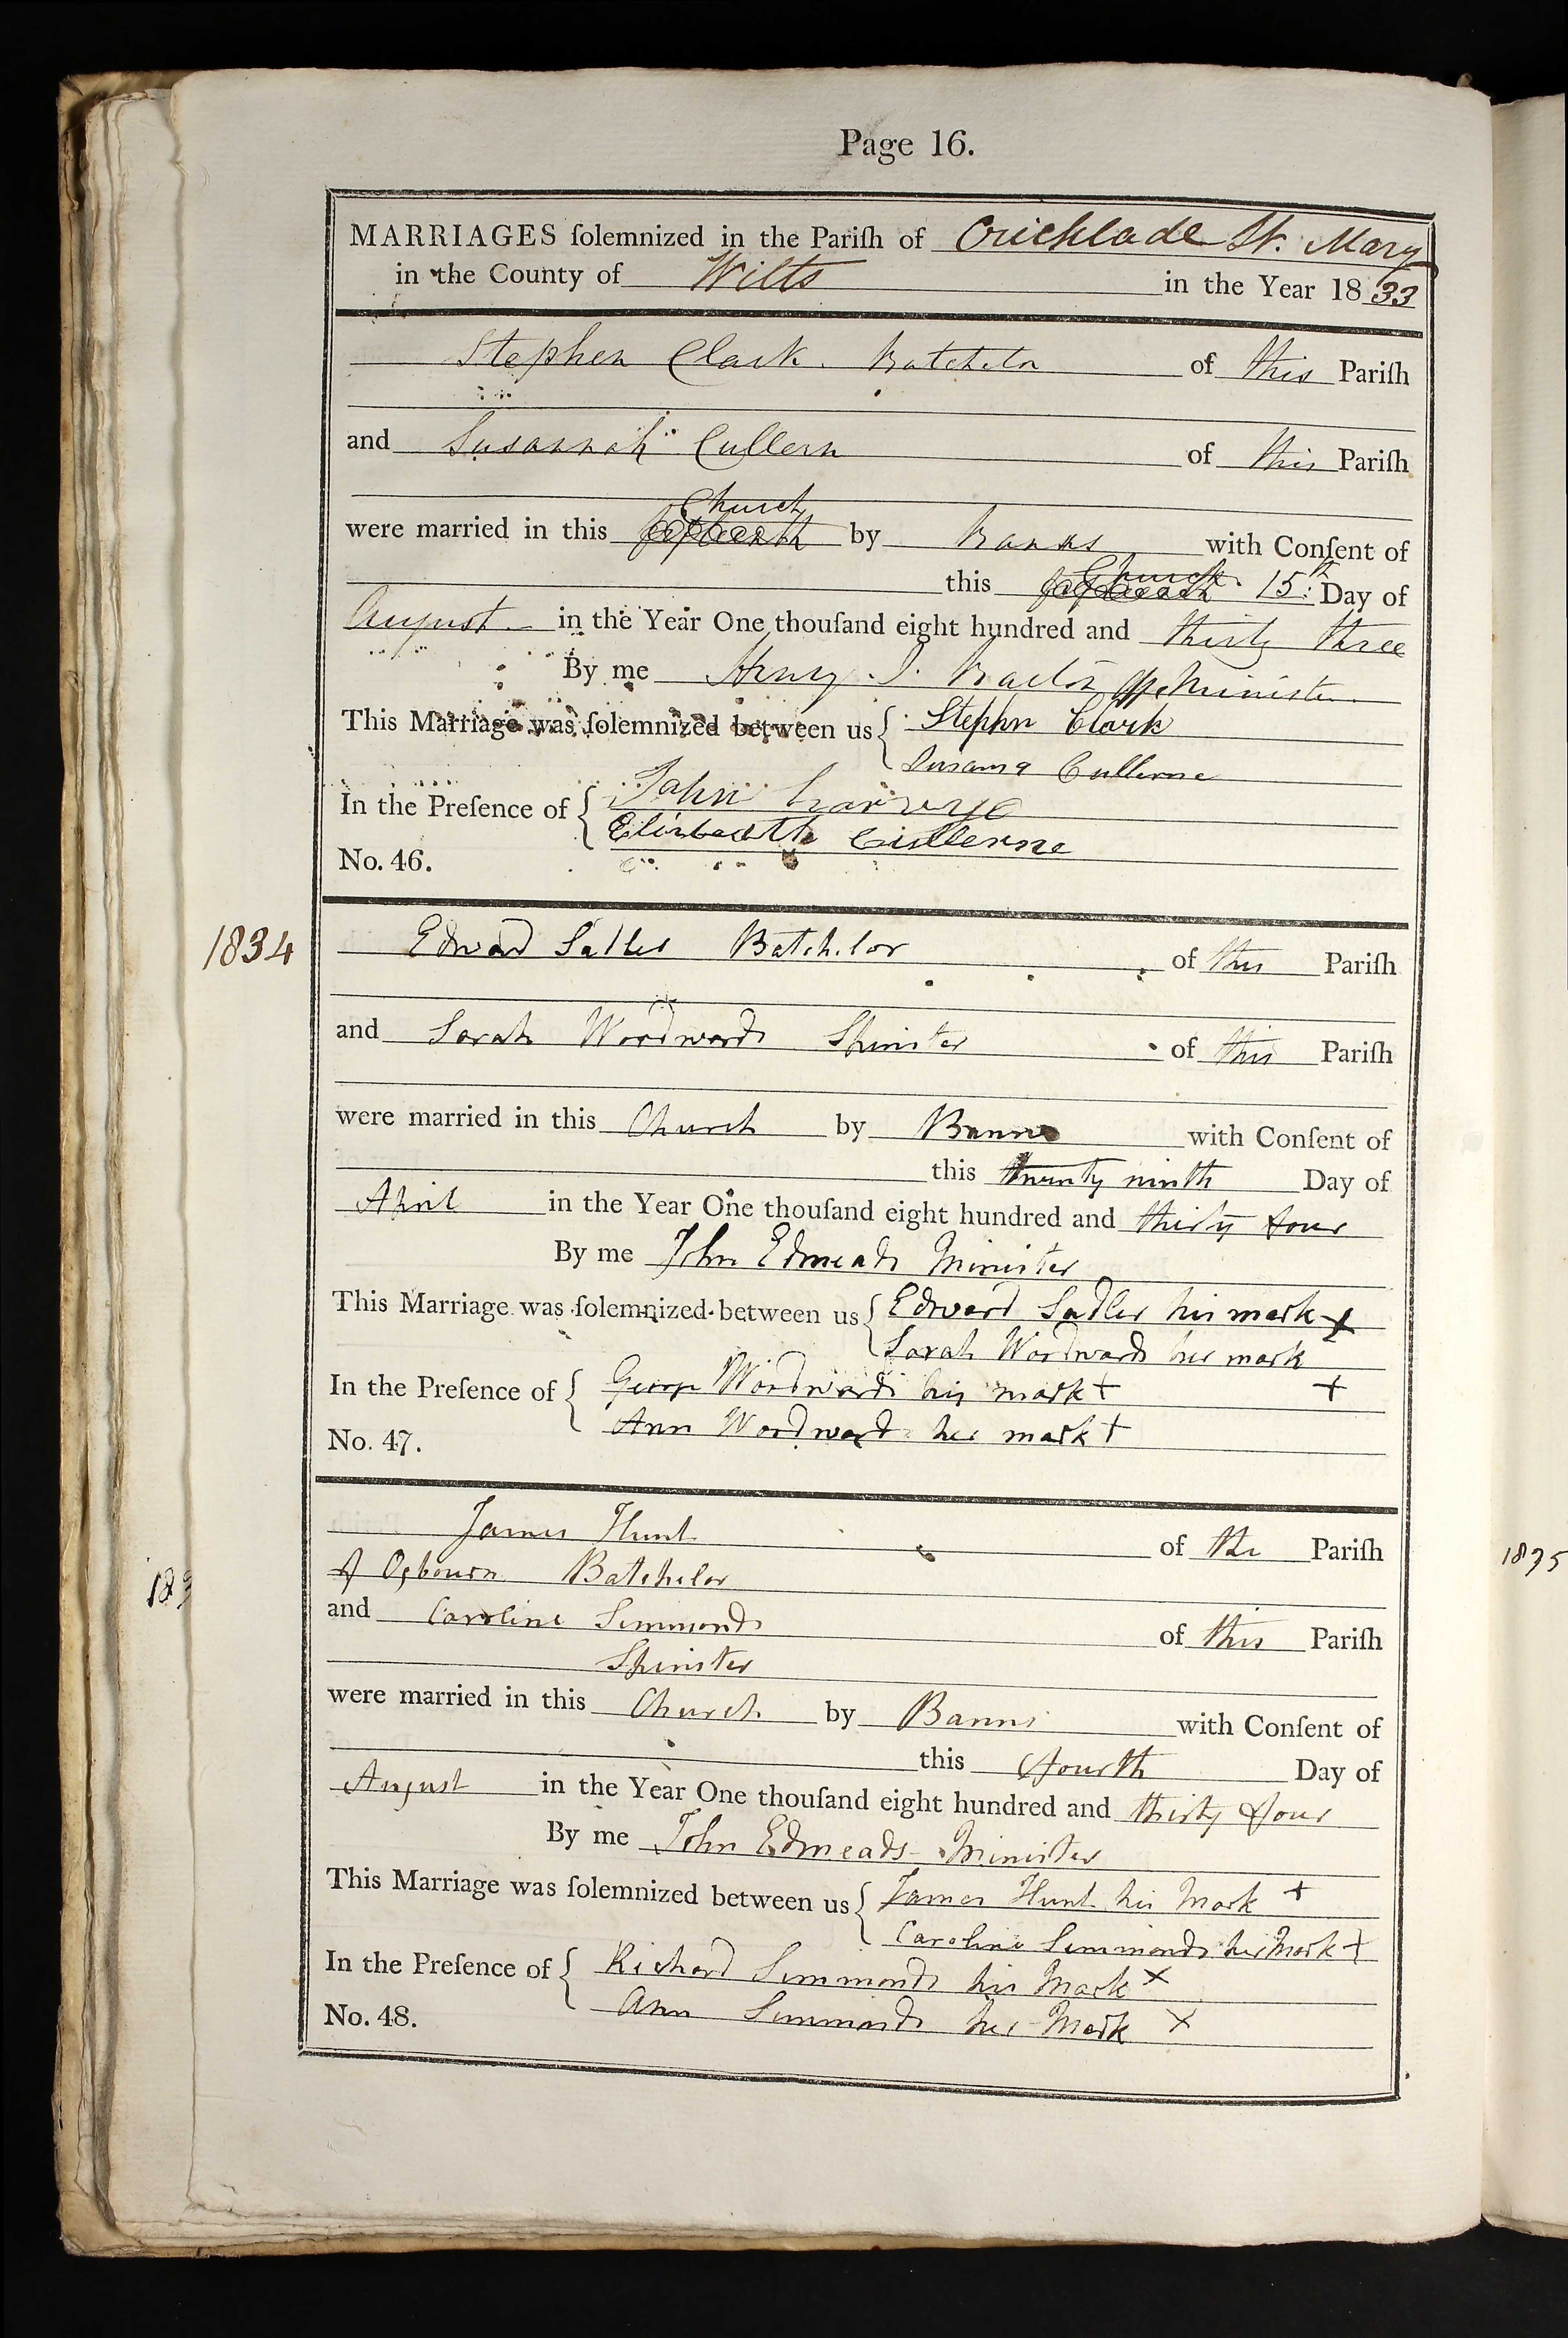 Page 16.
MARRIAGES ſolemnized in the Pariſh of Cricklade St. Mary
in the County of Wilts in the Year 1833
Stephen Clark. Batchelor of this Pariſh
and Susannah Cullern of this Pariſh
Church
were married in this by Banns with Conſent of
this Church 15th Day of
August in the Year One thouſand eight hundred and thirty three
By me Henry Minister
This Marriage was ſolemnized between us Stephn Clark
Susanna Cullerne
In the Preſence of John
Cullerne
No. 46.
1834
Edward Sadler Batchelor of this Pariſh
and Sarah Woodwards Spinster of this Pariſh
were married in this Church by Banns with Conſent of
this twenty ninth Day of
April in the Year One thouſand eight hundred and thirty four
By me John Edmeads Minister
This Marriage was ſolemnized between us Edward Sadler his mark X
Sarah Woodwards her mark
In the Preſence of George Woodwards his mark + +
Ann Woodward her mark +
No. 47.
James Hunt of the Pariſh
of Ogbourn Batchelor
and Caroline Simmonds of this Pariſh
Spinster
were married in this Church by Banns with Conſent of
this fourth Day of
August in the Year One thouſand eight hundred and thirty four
By me John Edmeads Minister
This Marriage was ſolemnized between us James Hunt his Mark +
Caroline Simmonds her Mark +
183
1835
In the Preſence of Richard Simmonds his Mark X
Ann Simmonds her Mark X
No. 48.